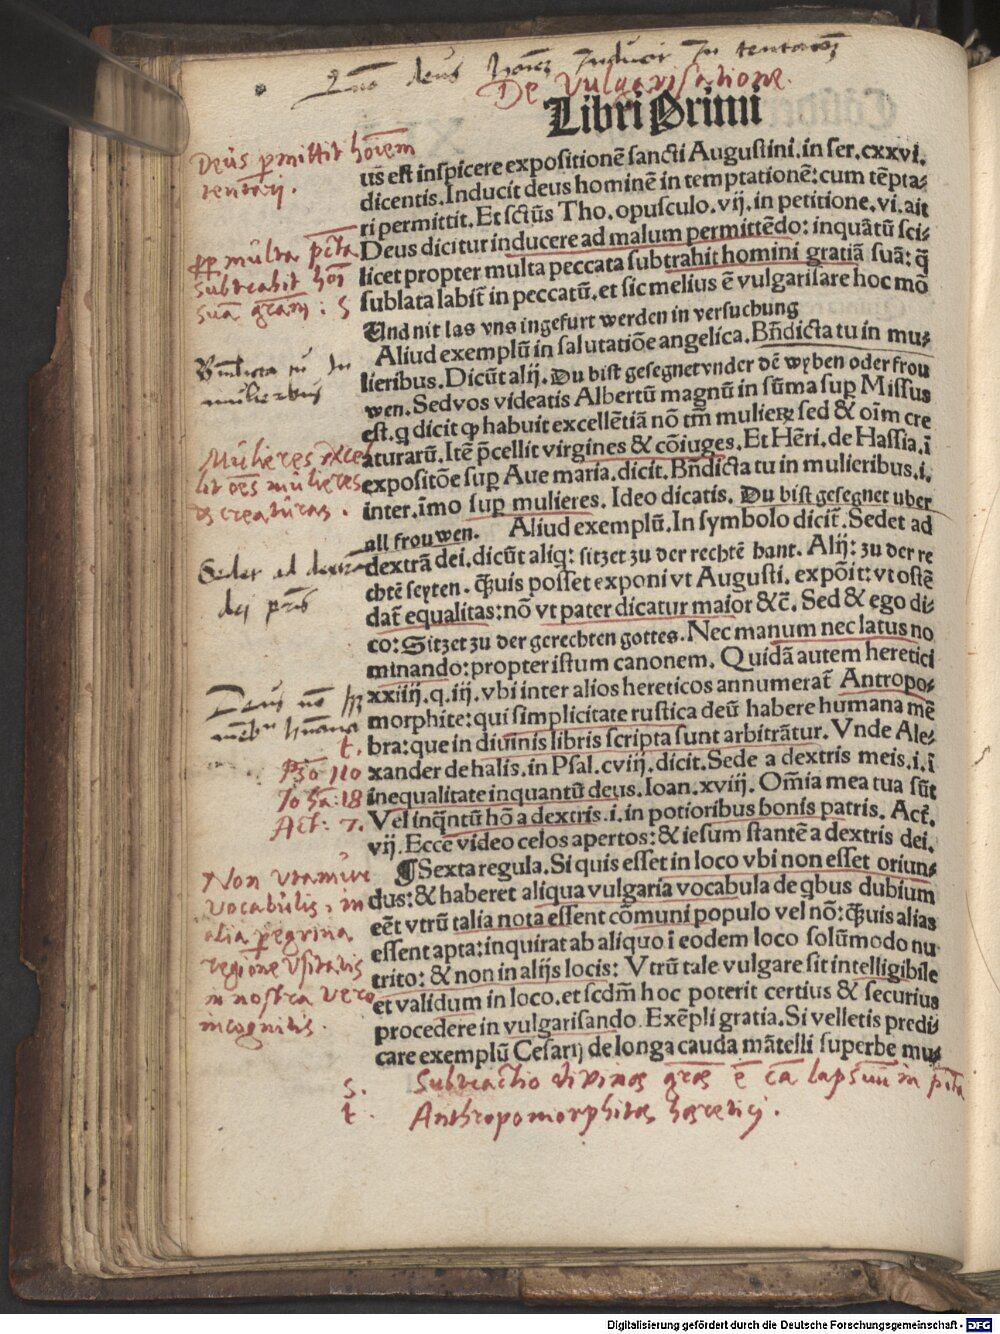 Quō deus hoīem Inducit In tentatōē
De Vulgarisatione.
Libri Primi
Deūs ꝑmittit hoīem
tentarj.
us est inspicere expositionē sancti Augustini.in ser.cxxvi.
dicentis.Inducit deus hominē in temptationē:cum tēpta⸗
ri permittit.Et sctūs Tho.opusculo.vij.in petitione.vi.ait
ꝓpr mūlta pctā
subtrahit hoī
suā grām : s
Deus dicitur inducere ad malum permittēdo: inquātū sci⸗
licet propter multa peccata subtrahit homini gratiā suā: q̄
sublata labit̄ in peccatū.et sic melius ē vulgarisare hoc mō
Und nit las vns ingefurt werden in versuchung
Bn̄dicta tu In
mulieribus
Aliud exemplū in salutatiōe angelica.Bn̄dicta tu in mu⸗
lieribus.Dicūt alij.Du bist gesegnet vnder dē wyben oder frou
wen.Sed vos videatis Albertū magnū in sūma suꝑ Missus
est.q dicit ꝙ habuit excellētiā nō tm̄ mulieꝝ sed & oīm cre
Mūlieres excel
lit oēs mūlieres
et creatūras .
aturarū.Itē p̄cellit virgines & cōiuges.Et Hēri.de Hassia.ī
expositōe suꝑ Aue maria.dicit.Bn̄dicta tu in mulieribus.i.
inter.īmo suꝑ mulieres. Ideo dicatis. Du bist gesegnet uber
all frouwen. Aliud exemplū.In symbolo dicit̄.Sedet ad
Sedet ad dextrā
dej pris
dextrā dei.dicūt aliq: sitzet zu der rechtē hant. Alij: zu der re
chtē seyten. Q̄uis posset exponi vt Augusti. expōit: vt ostē
dat̄ equalitas:nō vt pater dicatur maior &c̄. Sed & ego di⸗
co: Sitzet zu der gerechten gottes. Nec manum nec latus no
minando:propter istum canonem. Quidā autem heretici
Deus nō hꝫ
mēbra humana
t.
xxiiij.q.iij.vbi inter alios hereticos annumerat̄ Antropo⸗
morphite:qui simplicitate rustica deū habere humana mē
bra:que in diuinis libris scripta sunt arbitrātur. Vnde Ale⸗
Psō 110
Johā: 18
Act: 7.
xander de halis.in Psal.cviij.dicit. Sede a dextris meis.i.ī
inequalitate inquantū deus. Ioan.xviij. Oīmia mea tua sūt
Vel inq̄ntū hō a dextris.i.in potioribus bonis patris. Act̄.
vij. Ecce video celos apertos: & iesum stantē a dextris dei.
Non vtamūr
vocabūlis, in
alia ꝑegrina
regione vsitatis
in nostra vero
incognitis.
¶Sexta regula.Si quis esset in loco vbi non esset oriun⸗
dus:& haberet aliqua vulgaria vocabula de qbus dubium
eēt vtrū talia nota essent cōmuni populo vel nō:q̄uis alias
essent apta:inquirat ab aliquo ī eodem loco solūmodo nu
trito: & non in alijs locis: Vtrū tale vulgare sit intelligibile
et validum in loco.et scdm̄ hoc poterit certius & securius
procedere in vulgarisando. Exēpli gratia.Si velletis predi⸗
care exemplū Cesarij de longa cauda mātelli superbe mu⸗
s. Subtractio divinae grae ē cā lapsuum in pctā
t. Anthropomorphitae haeretici .
Digitalisierung gefördert durch die Deutsche Forschungsgemeinschaft - DFG